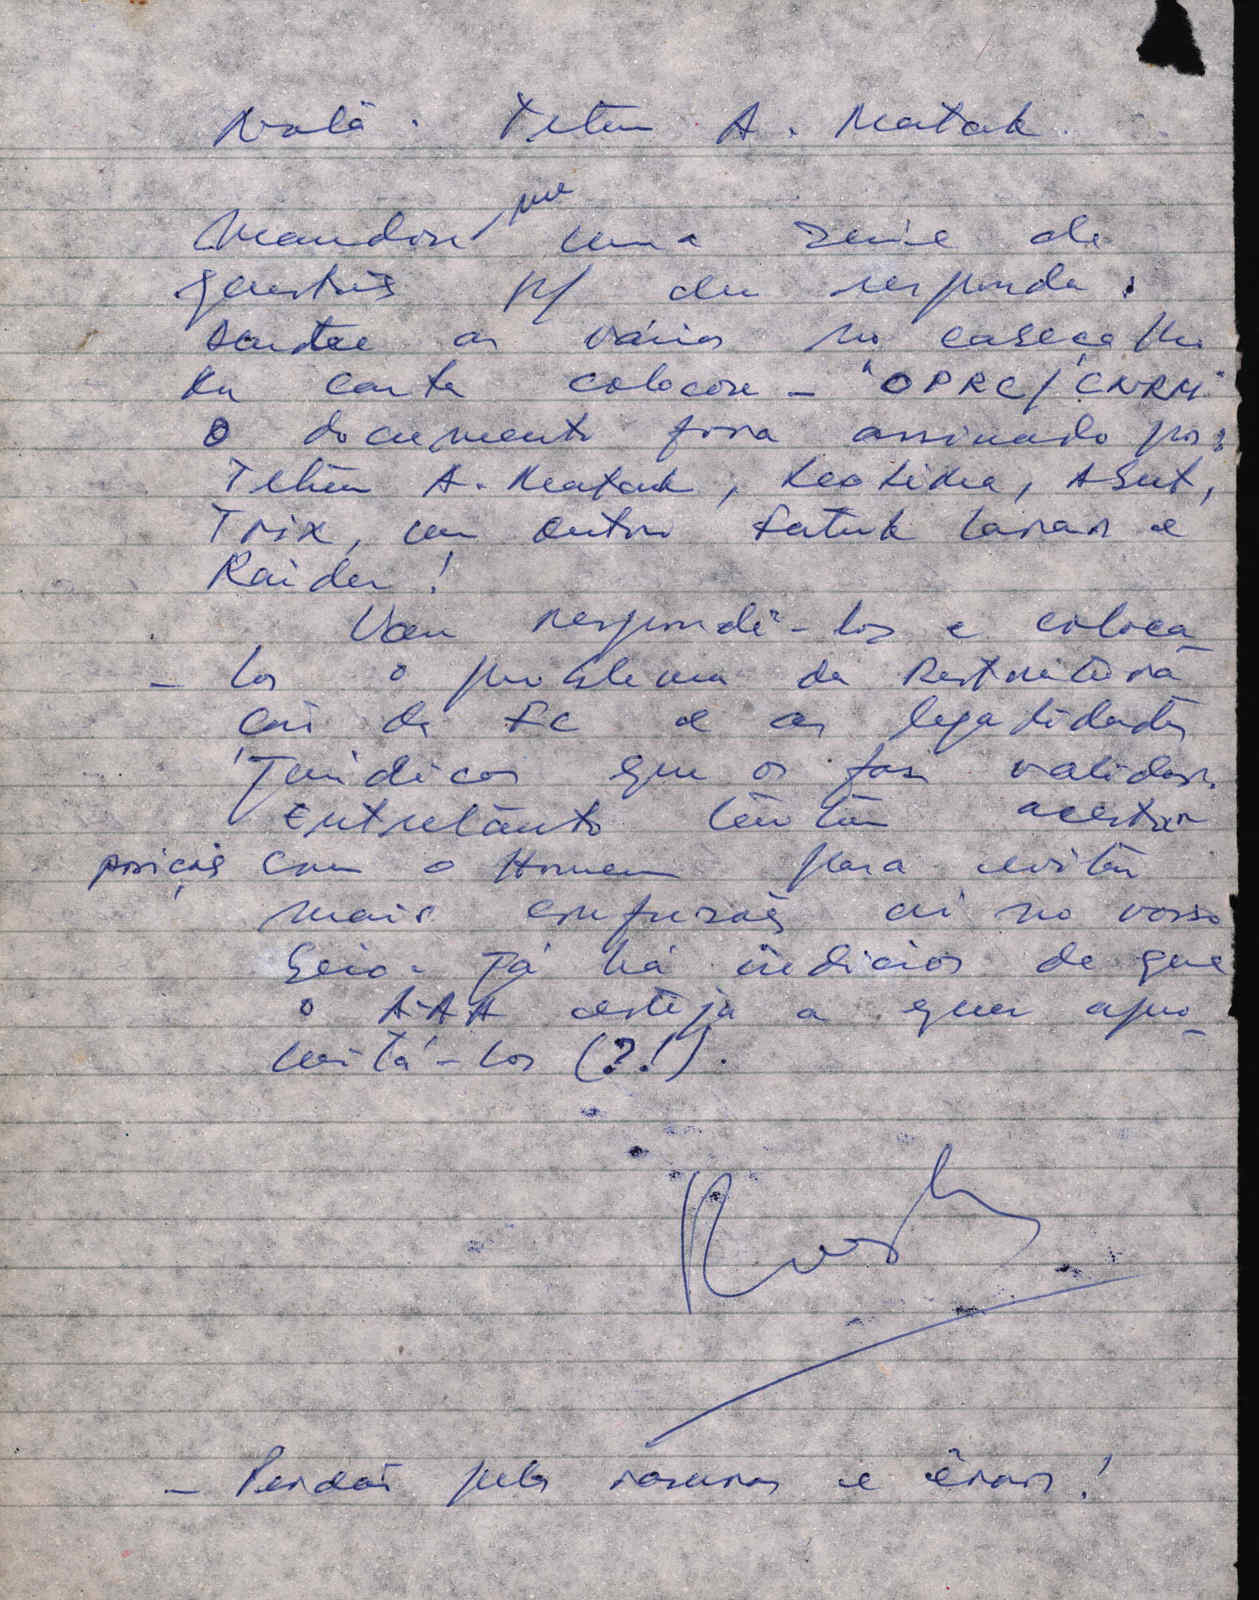 Nota. Tetum A. Matak
Mandou-me uma serie de
questões p/ eu responda:
dentre as várias no cabeçalho
da carta colocou - "OPRC/CNRM"
O documento fora assinado por:
Tetum A. Matak, Keotike, Asut,
Trix, um outro Fatuk Lanar e
Raider!
Vou respondê-los e coloca
- los o problema da Restrutura
ção da FC e as legalidades
jurídicas que os faz validar.
Entretanto tentem acertar
posições com o Homem para evitar
mais confusões aí no vosso
seio. Já há indícios de que
o AAA esteja a quer apro
veitá-los (?!).
- Perdão pelas rasuras e êrros!